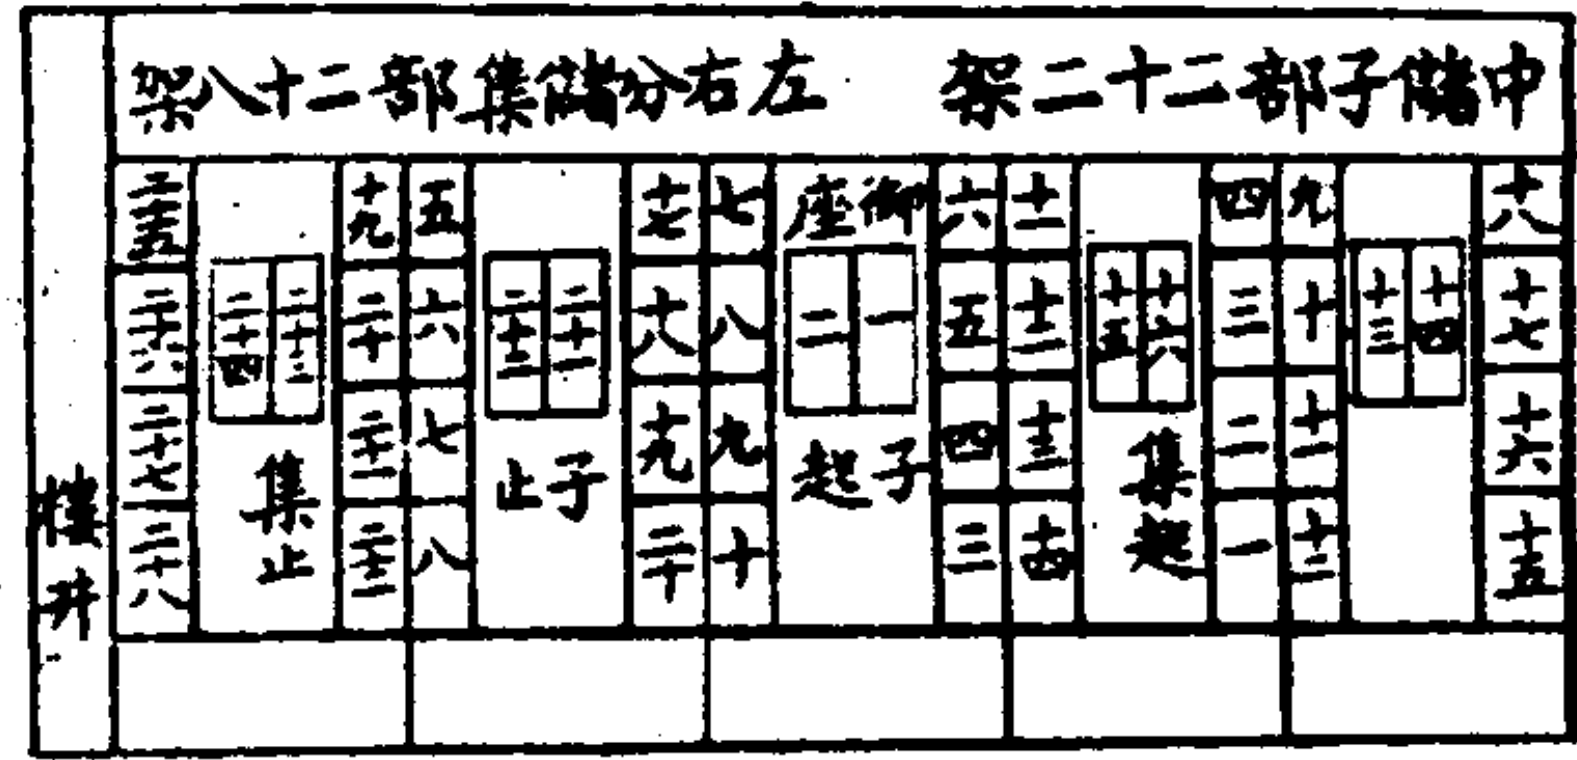 中儲子部二十二架
左右分儲集部二十八架
十八
十七
十六
十五
十四
十三
九
十
十一
十二
四
三
二
一
十六
十五
集起
十一
十二
十三
十四
六
五
四
三
御座
一
二
子起
七
八
九
十
十七
十八
十九
二十
二十一
二十二
子止
五
六
七
八
十九
二十
二十一
二十二
二十三
二十四
集止
二十五
二十六
二十七
二十八
樓井